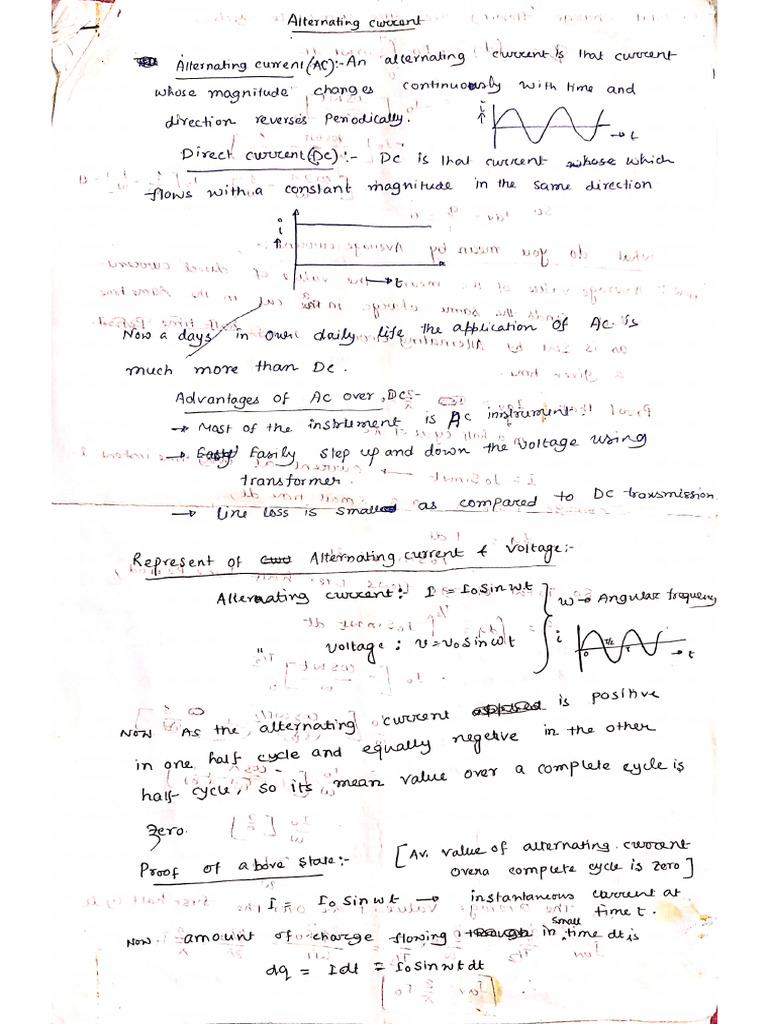 Alternating current
Alternating current (AC):- An alternating current is that current
whose magnitude changes continuously with time and
direction reverses Periodically.
i
t
Direct current (DC) :- DC is that current whose which
flows with a constant magnitude in the same direction
i
t
Now a days in our daily life the application of AC is
much more than DC.
Advantages of AC over DC:-
→ Most of the instrument is AC instrument.
→ Easily Easily step up and down the voltage using
transformer.
→ Line loss is small as compared to DC transmission
Represent of Alternating current & Voltage:-
Alternating current: I = I₀ sin wt
w → Angular frequency
" Voltage : v = v₀ sin wt
i
0 T/2 T
t
Now As the alternating current is positive
in one half cycle and equally negetive in the other
half cycle, so its mean value over a complete cycle is
zero.
[Av. value of alternating current
over a complete cycle is zero]
Proof of above state:-
I = I₀ sin wt → instantaneous current at
time t.
Now amount of charge flowing through in small time dt is
dq = I dt = I₀ sin wt dt